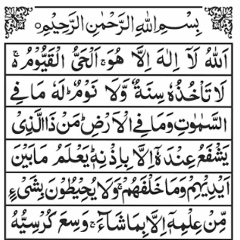 بِسْمِ اللّٰهِ الرَّحْمٰنِ الرَّحِيْمِ
اَللّٰهُ لَآ اِلٰهَ اِلَّا هُوَۚ اَلْحَىُّ الْقَيُّوْمُ ۚ
لَا تَاْخُذُهٗ سِنَةٌ وَّلَا نَوْمٌ ؕ لَهٗ مَا فِى
السَّمٰوٰتِ وَمَا فِى الْاَرْضِ ؕ مَنْ ذَا الَّذِىْ
يَشْفَعُ عِنْدَهٗۤ اِلَّا بِاِذْنِهٖ ؕ يَعْلَمُ مَا بَيْنَ
اَيْدِيْهِمْ وَمَا خَلْفَهُمْ ۚ وَلَا يُحِيْطُوْنَ بِشَىْءٍ
مِّنْ عِلْمِهٖۤ اِلَّا بِمَا شَآءَ ۚ وَسِعَ كُرْسِيُّهُ